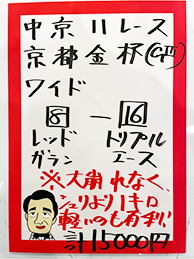 中京11レース
京都金杯(GⅢ)
ワイド
8 ― 16
レッド トリプル
ガラン エース
※大崩れなく、
ジュリより1キロ
軽いのも有利!
計15000円